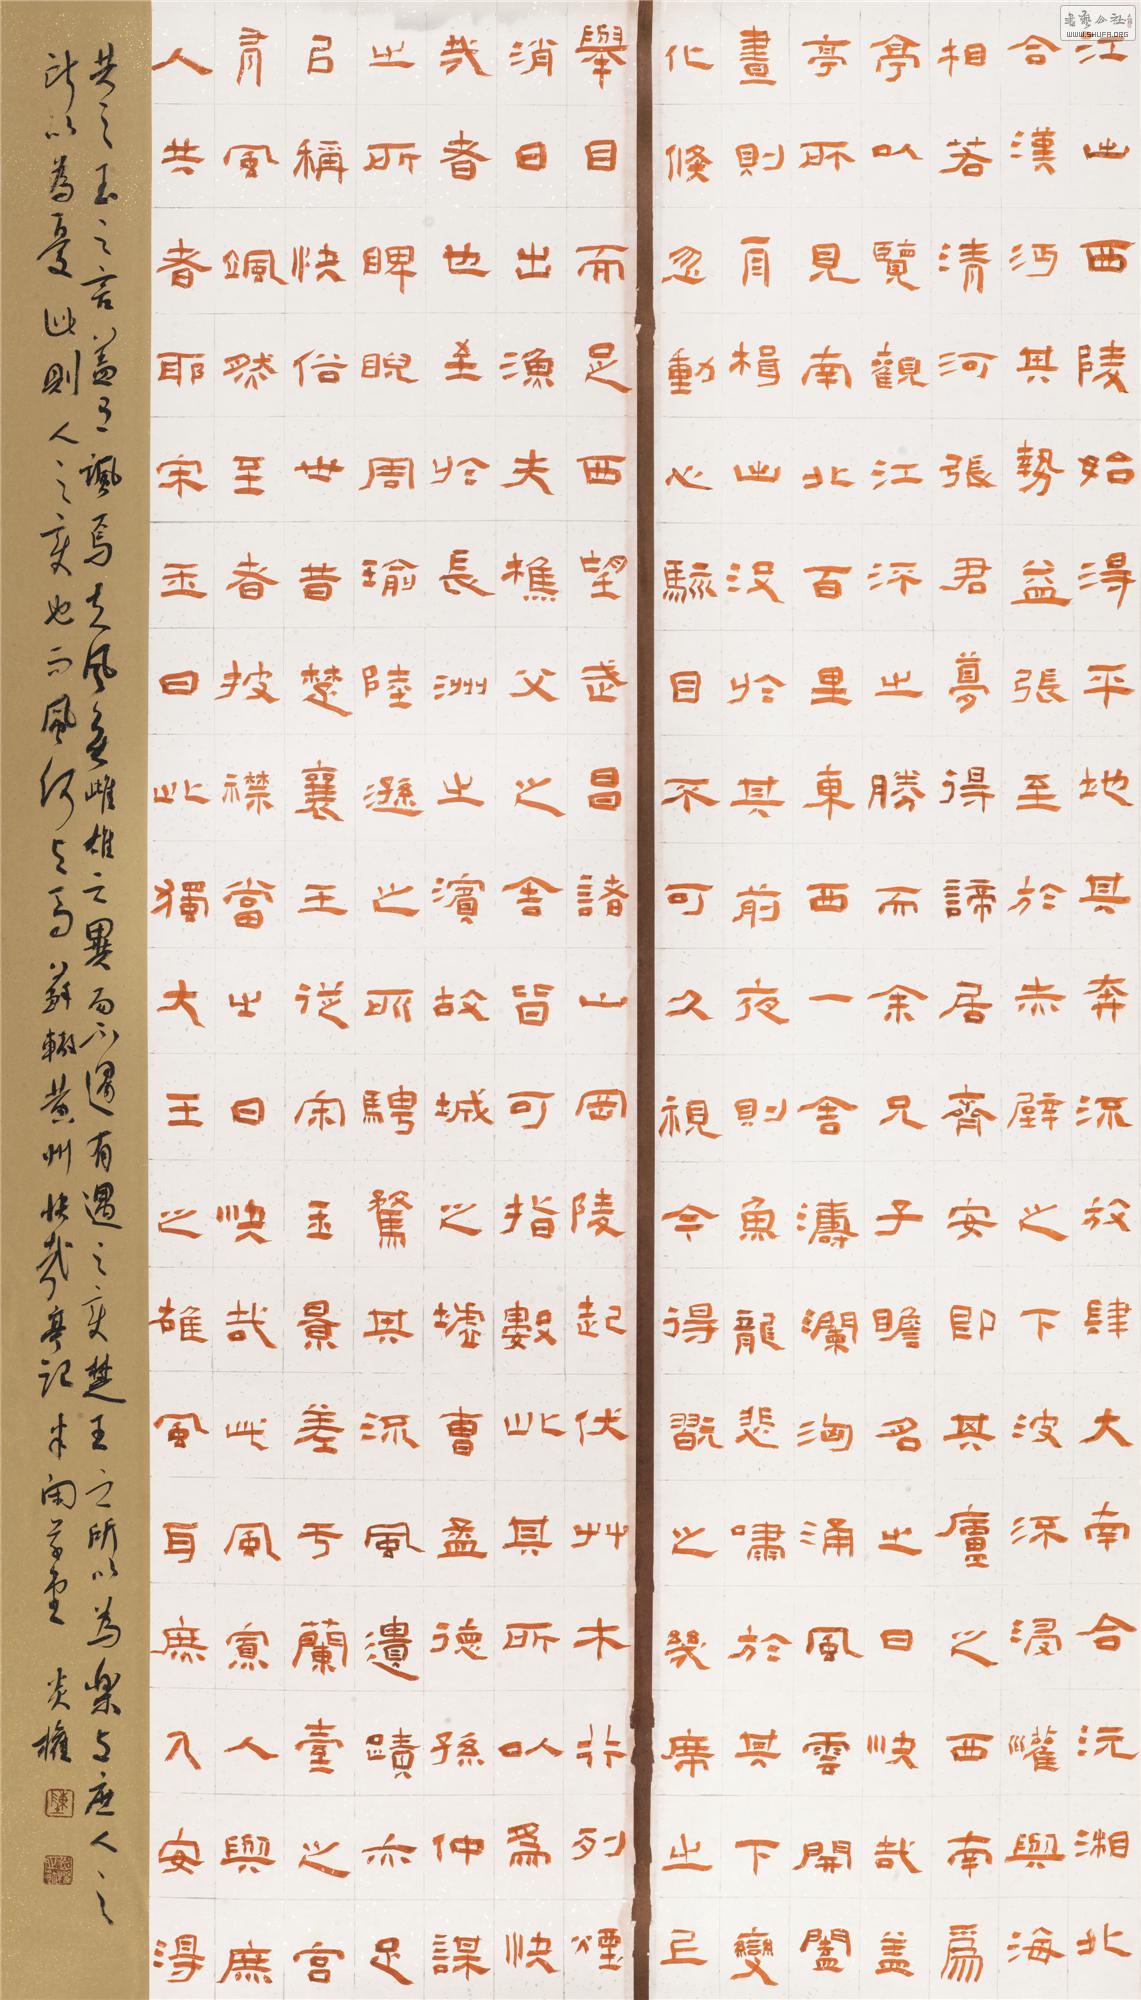 江出西陵始得平地其奔流放肆大南合沅湘北
合漢沔其勢益張至於赤壁之下波流浸灌與海
相若清河張君夢得謫居齊安即其廬之西南爲
亭以覽觀江流之勝而余兄子瞻名之曰快哉蓋
亭所見南北百里東西一舍濤瀾洶涌風雲開闔
晝則舟楫出沒於其前夜則魚龍悲嘯於其下變
化倏忽動心駭目不可久視今得翫之几席之上
舉目而足西望武昌諸山岡陵起伏艸木行列煙
消日出漁夫樵父之舍皆可指數此其所以爲快
哉者也至於長洲之濱故城之墟曹孟德孫仲謀
之所睥睨周瑜陸遜之所騁騖其流風遺蹟亦足
㠯稱快俗世昔楚襄王從宋玉景差于蘭臺之宮
有風颯然至者披襟當之曰快哉此風寡人與庶
人共者耶宋玉曰此獨大王之雄風耳庶人安得
共之玉之言蓋有諷焉夫風無雌雄之異而不遇有遇之變楚王之所以為樂與庶人之
所以為憂此則人之變也而風何與焉 蘇轍黃州快哉亭記 閑草堂 炎權
书艺公社
WWW.SHUFA.ORG